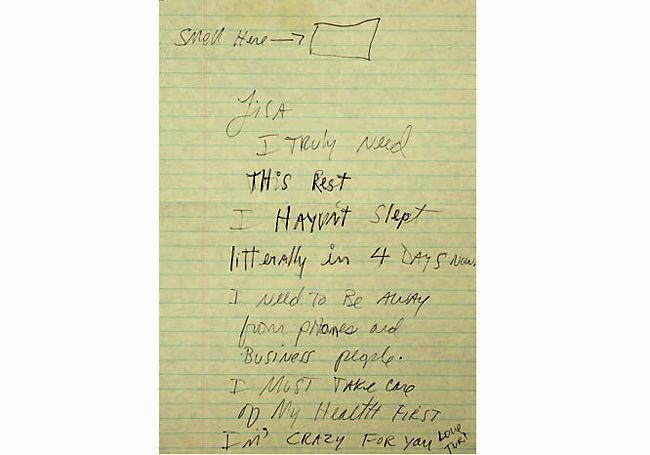 Smell Here →
Lisa
I Truly Need
THis Rest
I HAVn't Slept
litterally in 4 DAys Now.
I Need To Be AWAY
from pHones and
Business people.
I MUST TAKe Care
of My HealtH FIRST
I'm' CRAZY FOR you Love
TURK